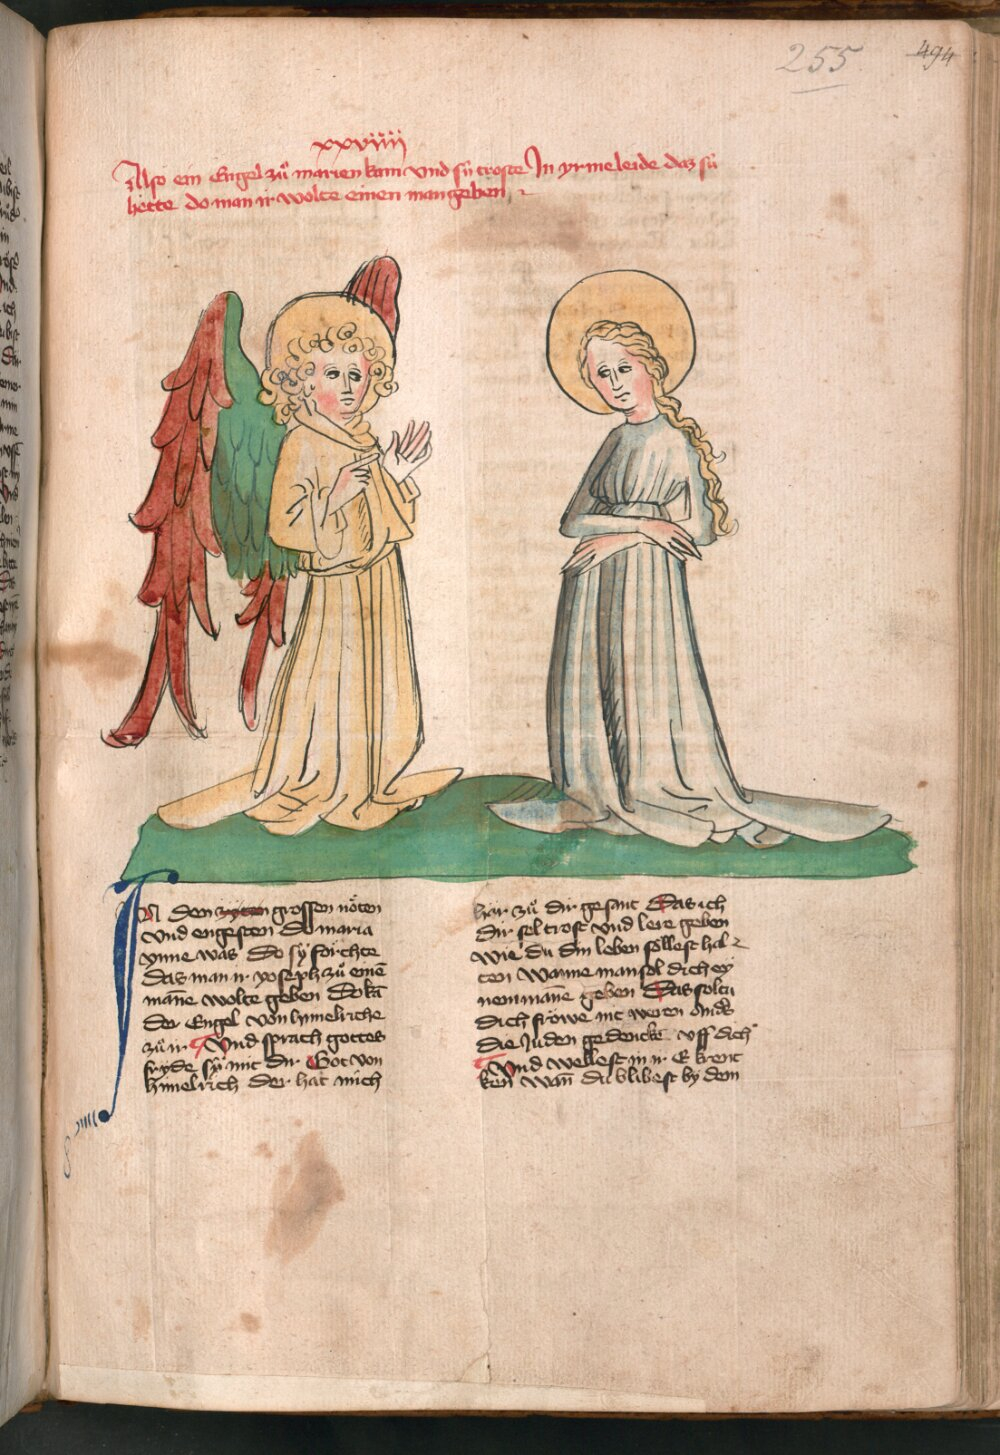 255
494
xxviiii
Also ein Engel zů marien kam vnd sü troste In yrme leide daz sü
hette do man ir wolte einen man geben
IN den zyten grossen nöten
vnd engesten Do maria
ynne was Do sÿ forchte
das man ir yoseph zů einē
mañe wolte geben Do kā
der Engel von hymelriche
zů ir Vnd sprach gottes
fryde sÿ mit dir Got von
himelrich der hat mich
har zů dir gesant Das ich
dir sol trost vnd lere geben
wie du din leben söllest hal
ten Wanne man sol dich ey
nem mañe geben Das soltu
dich fröwe nit weren
die Juden gedenckē vff dich
Vnd wellest in ir E krenc
ken Wañ du blibest by dem